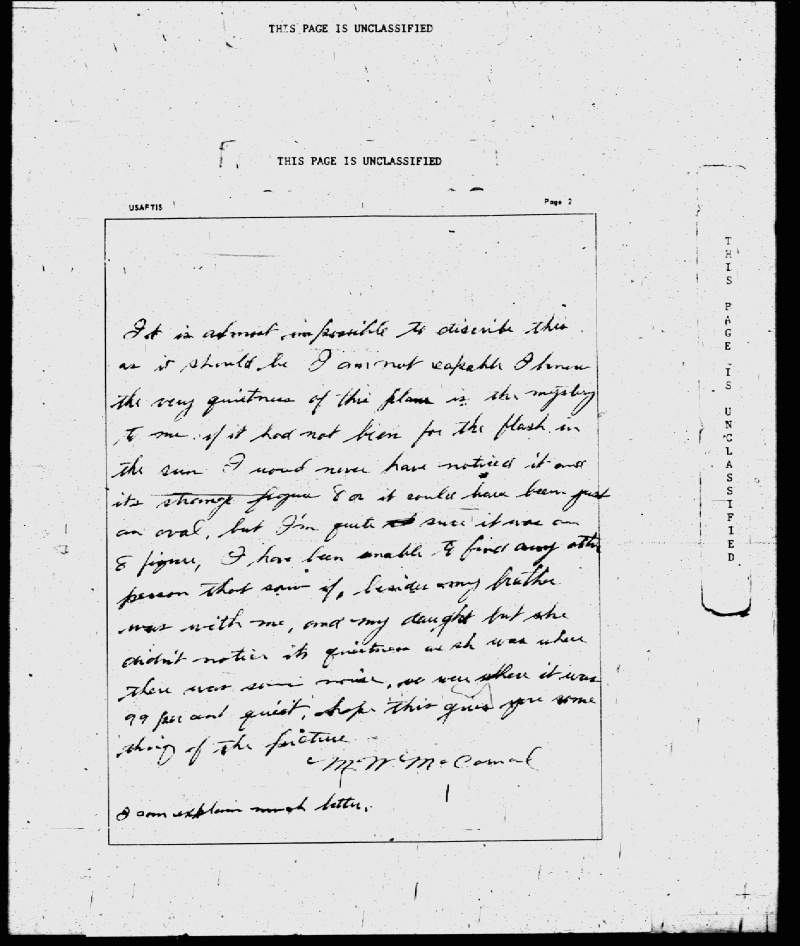 THIS PAGE IS UNCLASSIFIED
THIS PAGE IS UNCLASSIFIED
USAFTIS
Page 2
It is almost impossible to discribe this
as it should be I am not capable I know
the very quietness of this plane is the mystery
to me. if it had not been for the flash in
the sun I woud never have noticed it and
its strange figure 8 or it could have been just
an oval, but I'm quite sure it was an
8 figure, I have been unable to find any other
person that saw it, besides my brother
was with me, and my daught but she
didn't notice its quietness as sh was where
there was some noise, we were where it was
99 per cent quiet, hope this gives you some
thing of the picture
M. W. McComal
I can explain much better.
THIS PAGE IS UNCLASSIFIED